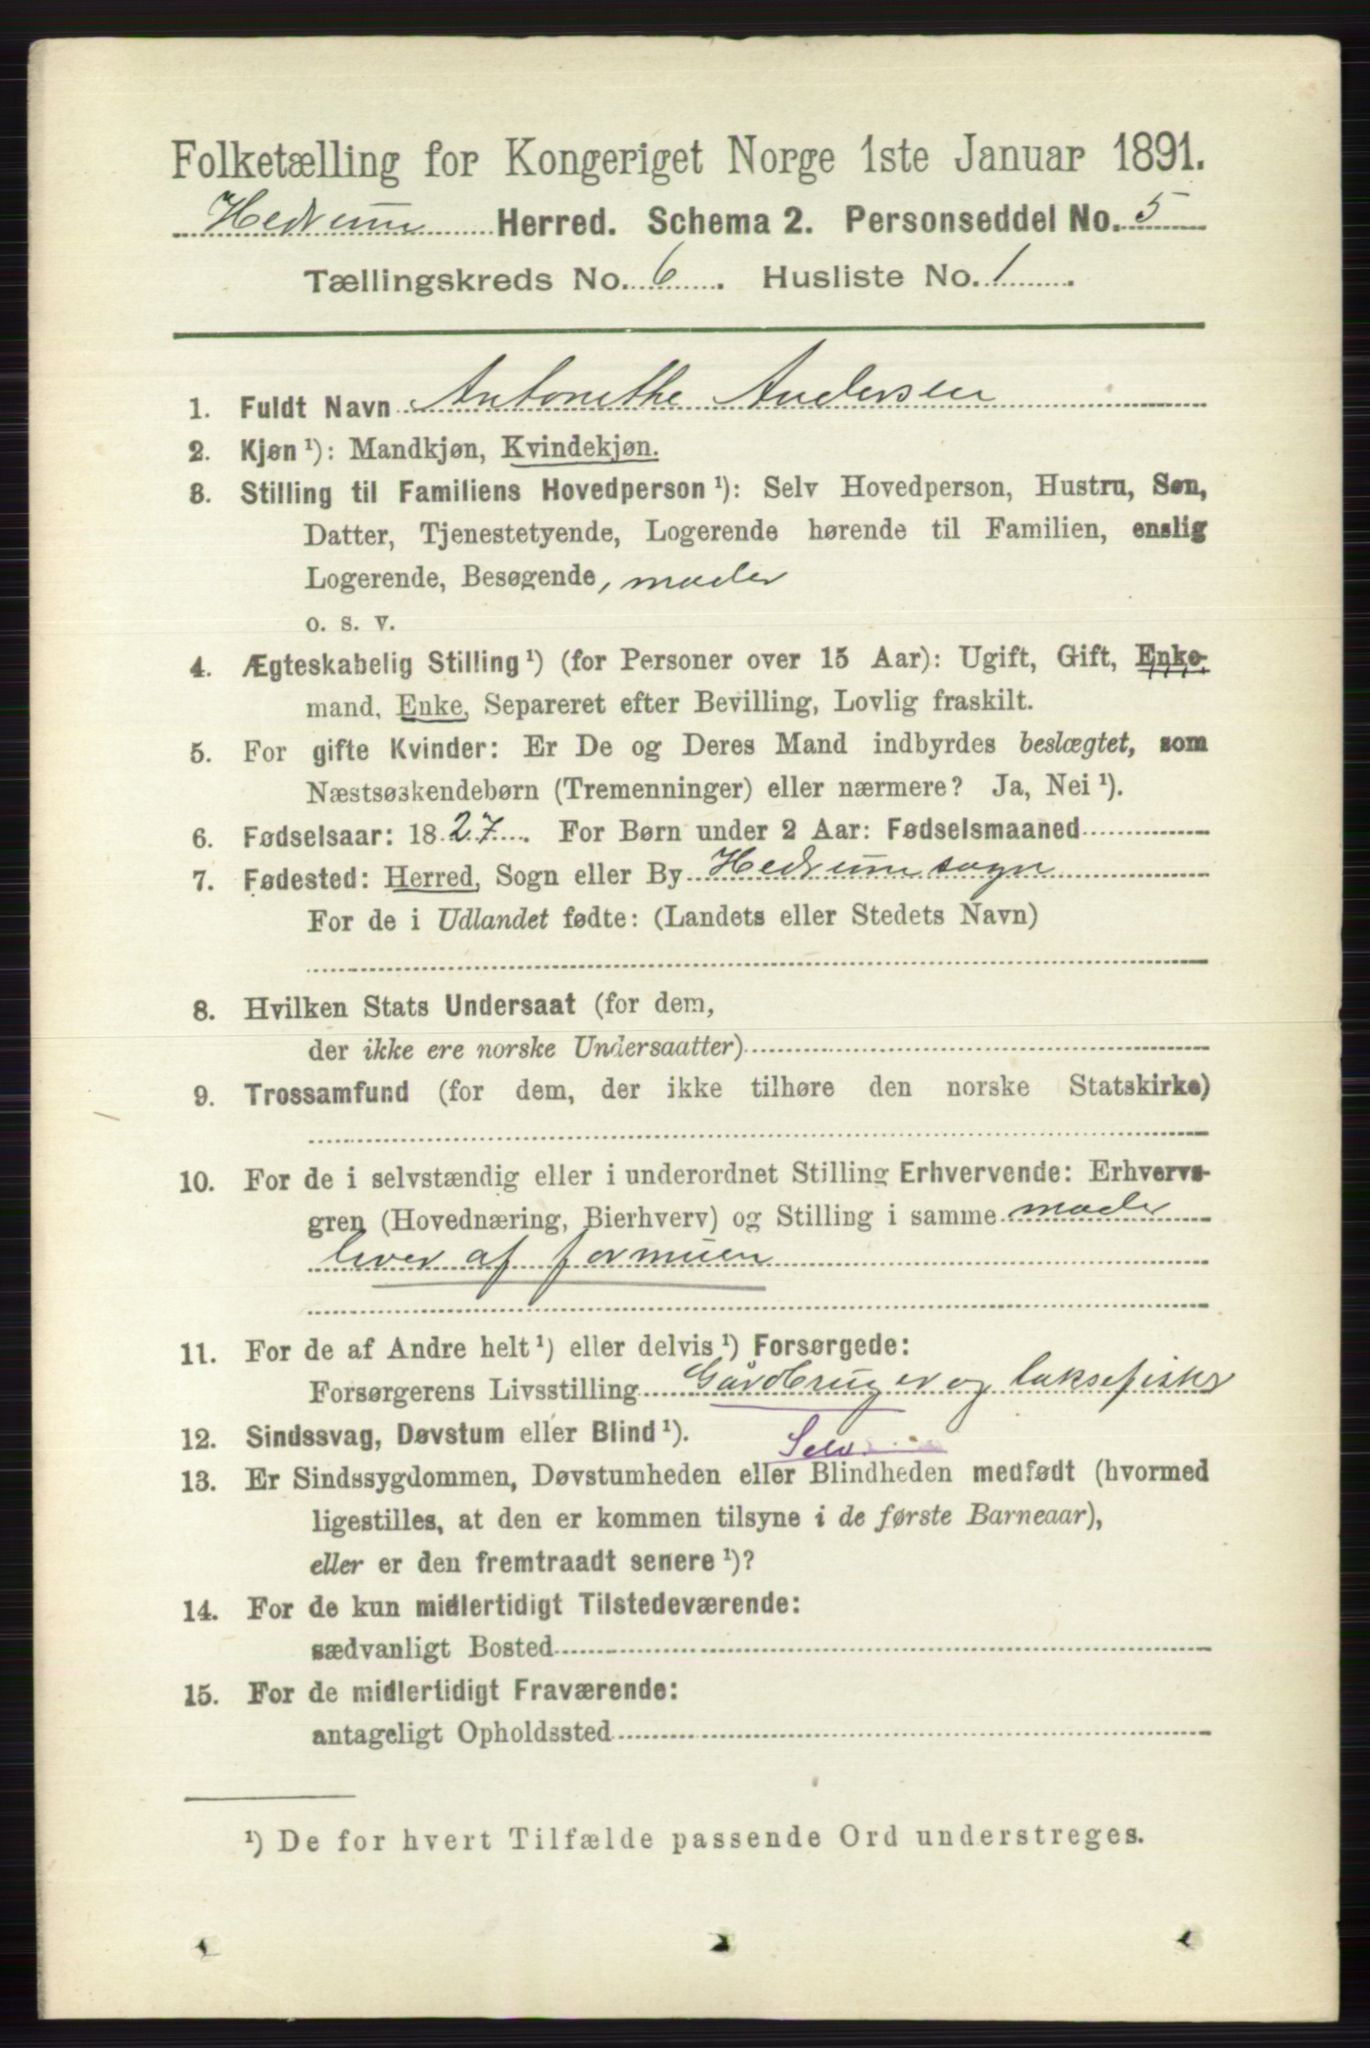 Folketælling for Kongeriget Norge 1ste Januar 1891.
Hedrum Herred. Schema 2. Personseddel No. 5
Tællingskreds No. 6. Husliste No. 1.
1. Fuldt Navn Antonethe Andersen
2. Kjøn ¹): Mandkjøn, Kvindekjøn.
3. Stilling til Familiens Hovedperson ¹): Selv Hovedperson, Hustru, Søn,
Datter, Tjenestetyende, Logerende hørende til Familien, enslig
Logerende, Besøgende, moder
o. s. v.
4. Ægteskabelig Stilling ¹) (for Personer over 15 Aar): Ugift, Gift, Enke-
mand, Enke, Separeret efter Bevilling, Lovlig fraskilt.
5. For gifte Kvinder: Er De og Deres Mand indbyrdes beslægtet, som
Næstsøskendebørn (Tremenninger) eller nærmere? Ja, Nei ¹).
6. Fødselsaar: 1827. For Børn under 2 Aar: Fødselsmaaned
7. Fødested: Herred, Sogn eller By Hedrum sogn
For de i Udlandet fødte: (Landets eller Stedets Navn)
8. Hvilken Stats Undersaat (for dem,
der ikke ere norske Undersaatter)
9. Trossamfund (for dem, der ikke tilhøre den norske Statskirke)
10. For de i selvstændig eller i underordnet Stilling Erhvervende: Erhvervs-
gren (Hovednæring, Bierhverv) og Stilling i samme moder
lever af formuen
11. For de af Andre helt ¹) eller delvis ¹) Forsørgede:
Forsørgerens Livsstilling Gårdbruger og laksefisker
12. Sindssvag, Døvstum eller Blind ¹). Selv
13. Er Sindssygdommen, Døvstumheden eller Blindheden medfødt (hvormed
ligestilles, at den er kommen tilsyne i de første Barneaar),
eller er den fremtraadt senere ¹)?
14. For de kun midlertidigt Tilstedeværende:
sædvanligt Bosted
15. For de midlertidigt Fraværende:
antageligt Opholdssted
¹) De for hvert Tilfælde passende Ord understreges.